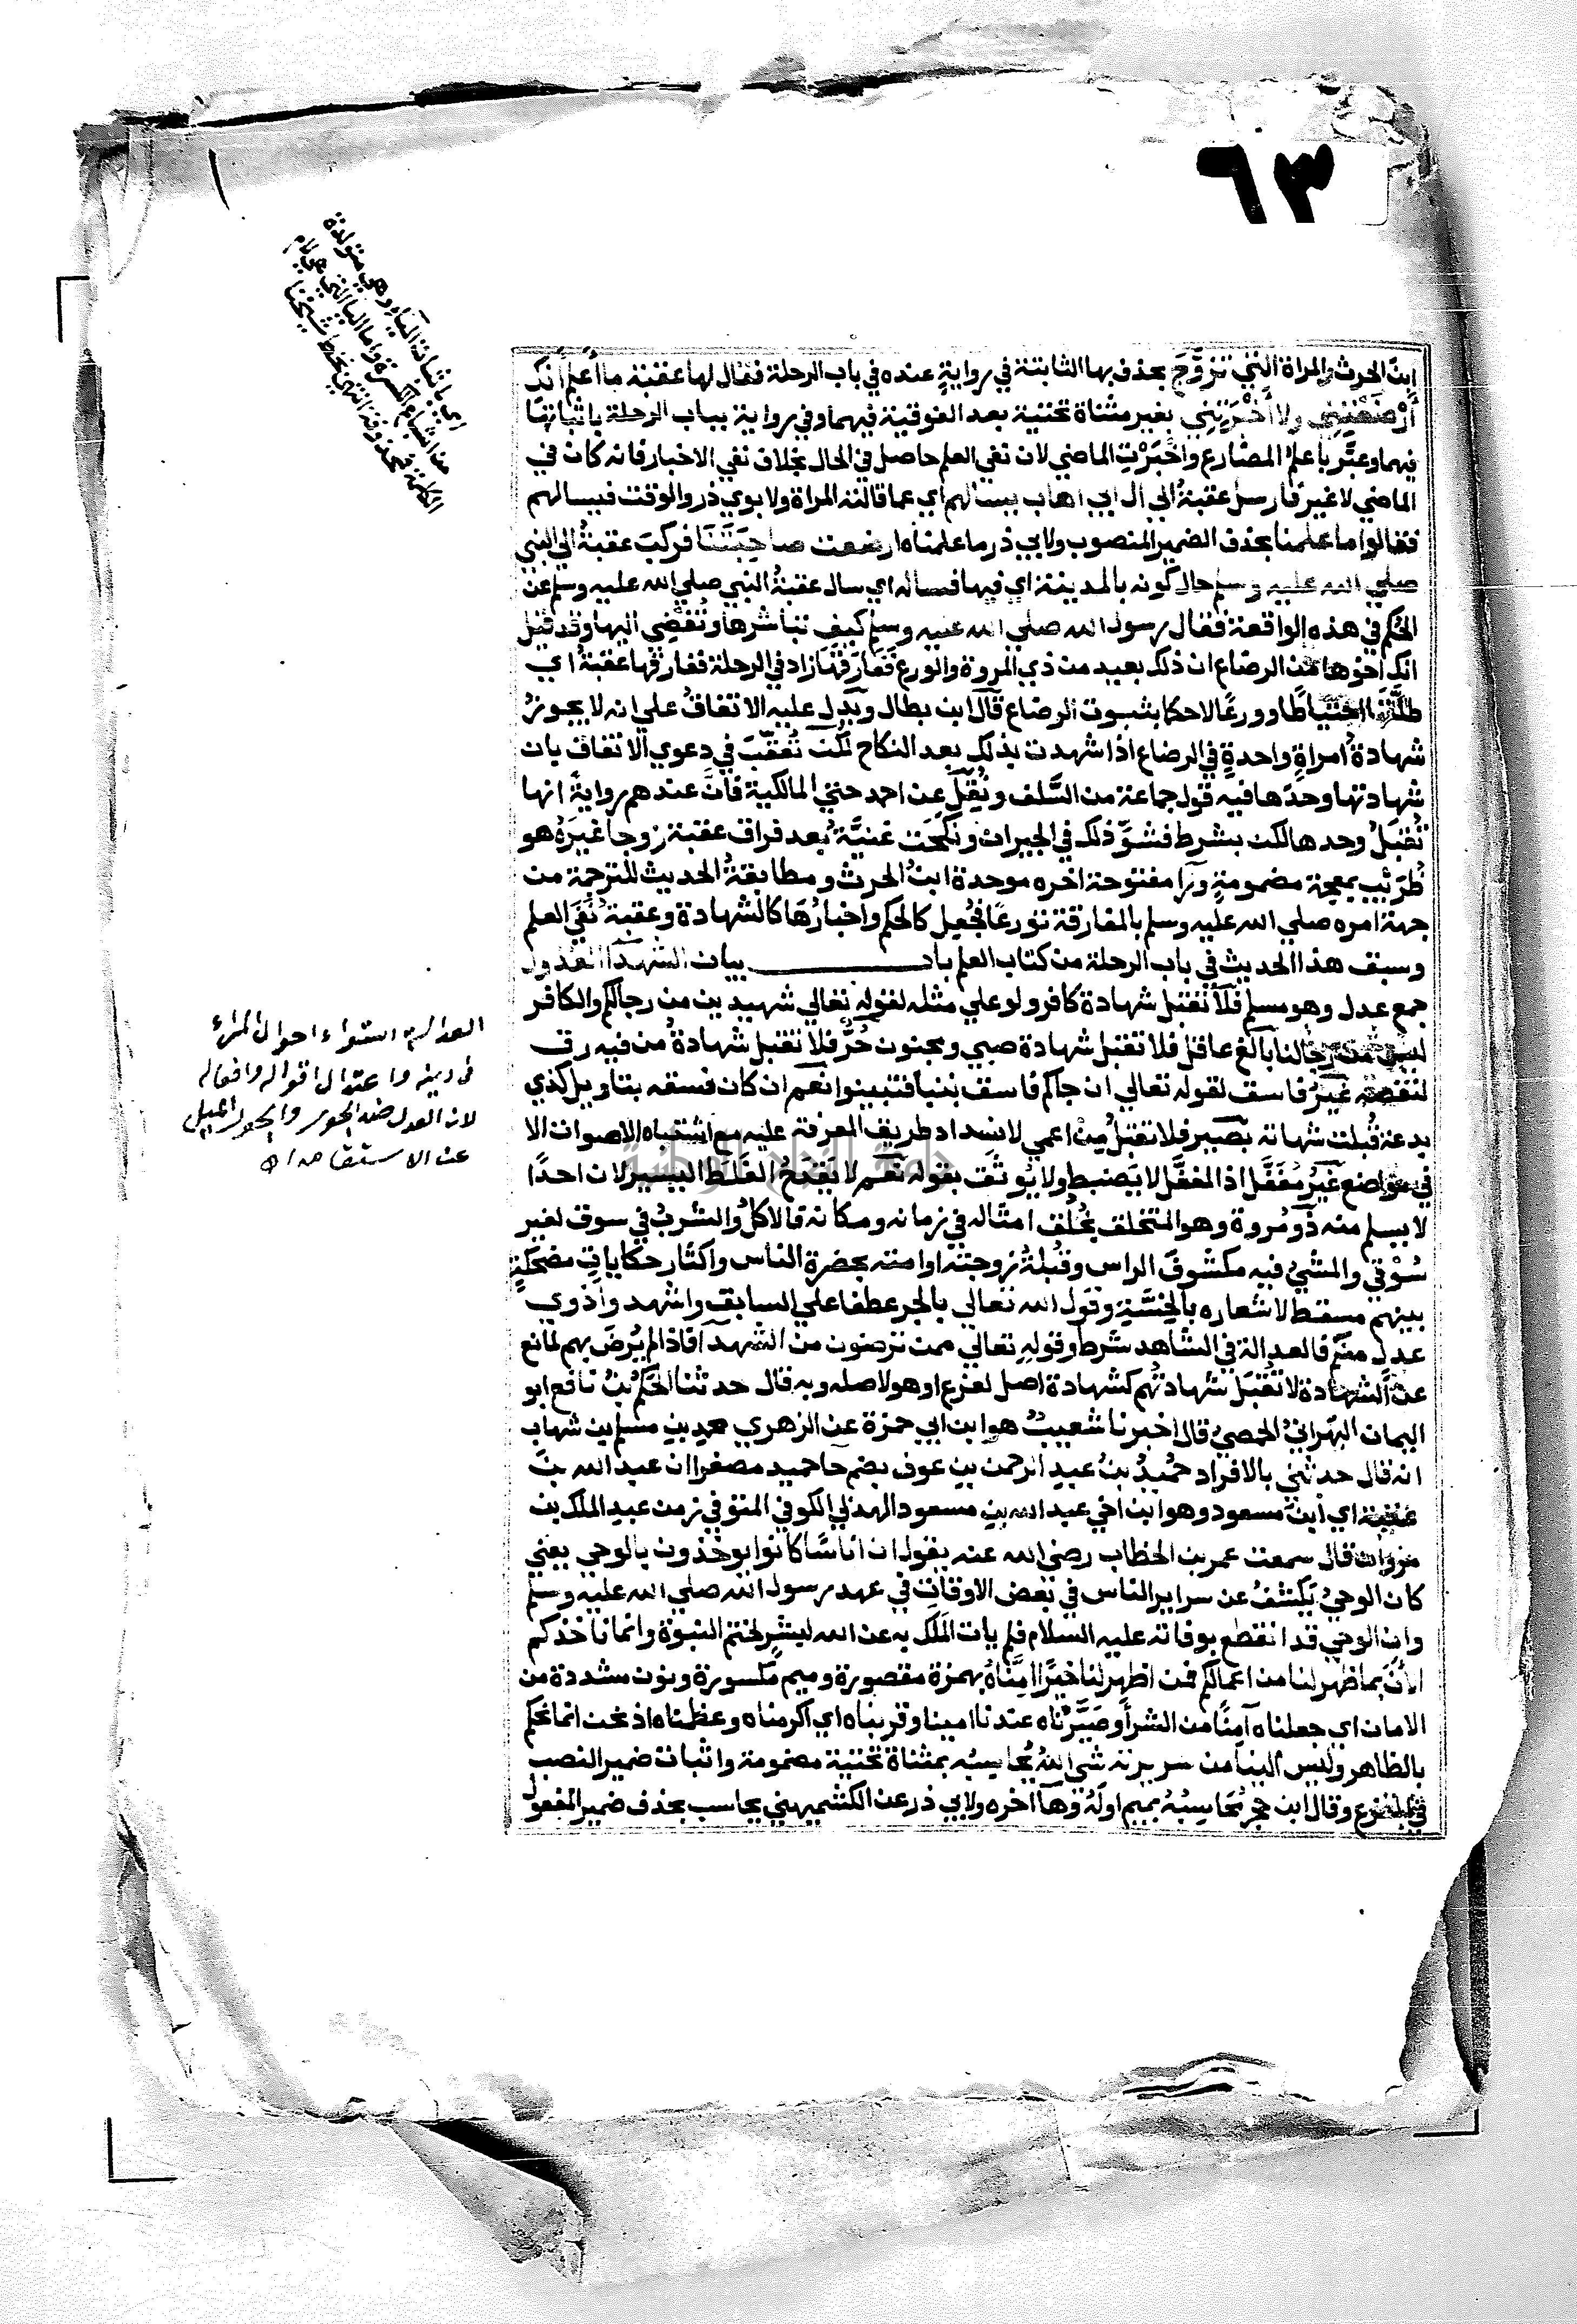 ٦٣
ابن الحرث والمراة التي تزوج بحذف بها الثابتة في رواية عنده في باب الرحلة فقال لها عقبة ما أعلم أنك
أرضعتني ولا أخبرتني بغير مثناة تحتية بعد الفوقية فيهما وفي رواية بباب الرحلة باثباتها
فيهما وعبر باعلم المضارع واخبرت الماضي لان نفي العلم حاصل في الحال بخلاف نفي الاخبار فانه كان في
الماضي لا غير فارسل عقبة الي ال ابي اهاب يسالهم اي عما قالته المراة ولابوي ذر والوقت فيسالهم
فقالوا ما علمنا بحذف الضمير المنصوب ولابي ذر ما علمناه ارضعت صاحبتنا فركب عقبة الي النبي
صلي الله عليه وسلم حال كونه بالمدينة اي فيها فساله اي سال عقبة النبي صلي الله عليه وسلم عن
الحكم في هذه الواقعة فقال رسول الله صلي الله عليه وسلم كيف تباشرها وتفضي اليها وقد قيل
انك اخوها من الرضاع ان ذلك بعيد من ذي المروة والورع ففارقها زاد في الرحلة ففارقها عقبة اي
طلقها احتياطا وورعا لا حكما بثبوت الرضاع قال ابن بطال ويدل عليه الاتفاق علي انه لا يجوز
شهادة امراة واحدة في الرضاع اذا شهدت بذلك بعد النكاح لكن تعقب في دعوي الاتفاق بان
شهادتها وحدها فيه قول جماعة من السلف ونقل عن احمد حتي المالكية فان عندهم رواية انها
تقبل وحدها لكن بشرط فشو ذلك في الجيران ونكحت غنية بعد فراق عقبة زوجا غيره هو
ظريب بمعجمة مضمومة ورا مفتوحة اخره موحدة ابن الحرث ومطابقة الحديث للترجمة من
جهة امره صلي الله عليه وسلم بالمفارقة تورعا فجعل كالحكم واخبارها كالشهادة وعقبة نفي العلم
وسبق هذا الحديث في باب الرحلة من كتاب العلم باب بيان الشهدآ العدول
جمع عدل وهو مسلم فلا تقبل شهادة كافر ولو علي مثله لقوله تعالي شهيدين من رجالكم والكافر
ليس من رجالنا بالغ عاقل فلا تقبل شهادة صبي ومجنون حر فلا تقبل شهادة من فيه رق
لنقصه غير فاسق لقوله تعالي ان جاكم فاسق بنبا فتبينوا نعم ان كان فسقه بتاويل كذي
بدعة قبلت شهاته بصير فلا تقبل من اعمي لانسداد طريق المعرفة عليه مع اشتباه الاصوات الا
في مواضع غير مغفل اذ المغفل لا يضبط ولا يوثق بقوله نعم لا يقدح الغلط اليسير لان احدا
لا يسلم منه ذو مروة وهو المتخلق بخلق امثاله في زمانه ومكانه فالاكل والشرب في سوق لغير
سوقي والمشي فيه مكشوف الراس وقبلة زوجته او امته بحضرة الناس واكثار حكايات مضحكة
بينهم مسقط لاشعاره بالخسة وقول الله تعالي بالجر عطفا علي السابق واشهدوا ذوي
عدل منكم فالعدالة في الشاهد شرط وقوله تعالي ممن ترضون من الشهدآ فاذا لم يرض بهم لمانع
عن الشهادة لا تقبل شهادتهم كشهادة اصل لفرع او هو لاصله وبه قال حدثنا الحكم بن نافع ابو
اليمان البهراني الحمصي قال اخبرنا شعيب هو ابن ابي حمزة عن الزهري محمد بن مسلم بن شهاب
انه قال حدثني بالافراد حميد بن عبد الرحمن بن عوف بضم حا حميد مصغرا ان عبد الله بن
عتبة اي ابن مسعود وهو ابن اخي عبد الله بن مسعود الهذلي الكوفي المتوفي زمن عبد الملك بن
مروان قال سمعت عمر بن الخطاب رضي الله عنه يقول ان اناسا كانوا يوخذون بالوحي يعني
كان الوحي يكشف عن سراير الناس في بعض الاوقات في عهد رسول الله صلي الله عليه وسلم
وان الوحي قد انقطع بوفاته عليه السلام فلم يات الملك به عن الله لبشر لختم النبوة وانما ناخذكم
الان بما ظهر لنا من اعمالكم فمن اظهر لنا خيرا امناه بهمزة مقصورة وميم مكسورة ونون مشددة من
الامان اي جعلناه آمنا من الشر أو صيرناه عندنا امينا وقربناه اي اكرمناه وعظمناه اذ نحن انما نحكم
بالظاهر وليس الينا من سريرته شي الله يحاسبه بمثناة تحتية مضمومة واثبات ضمير النصب
في الفرع وقال ابن حجر محاسبه بميم اوله وهآ اخره ولابي ذر عن الكشميهني يحاسب بحذف ضمير المفعول
اي باشباع التاء وهي متولدة
من اشباع الكسرة واما اليا التي هي لام
الكلمة فمحذوفة انتهي بخط شيخنا
العدالة استواء احوال المرء
في دينه واعتدال اقواله وافعاله
لان العدل ضد الجور والجور الميل
عن الاستقامة اه